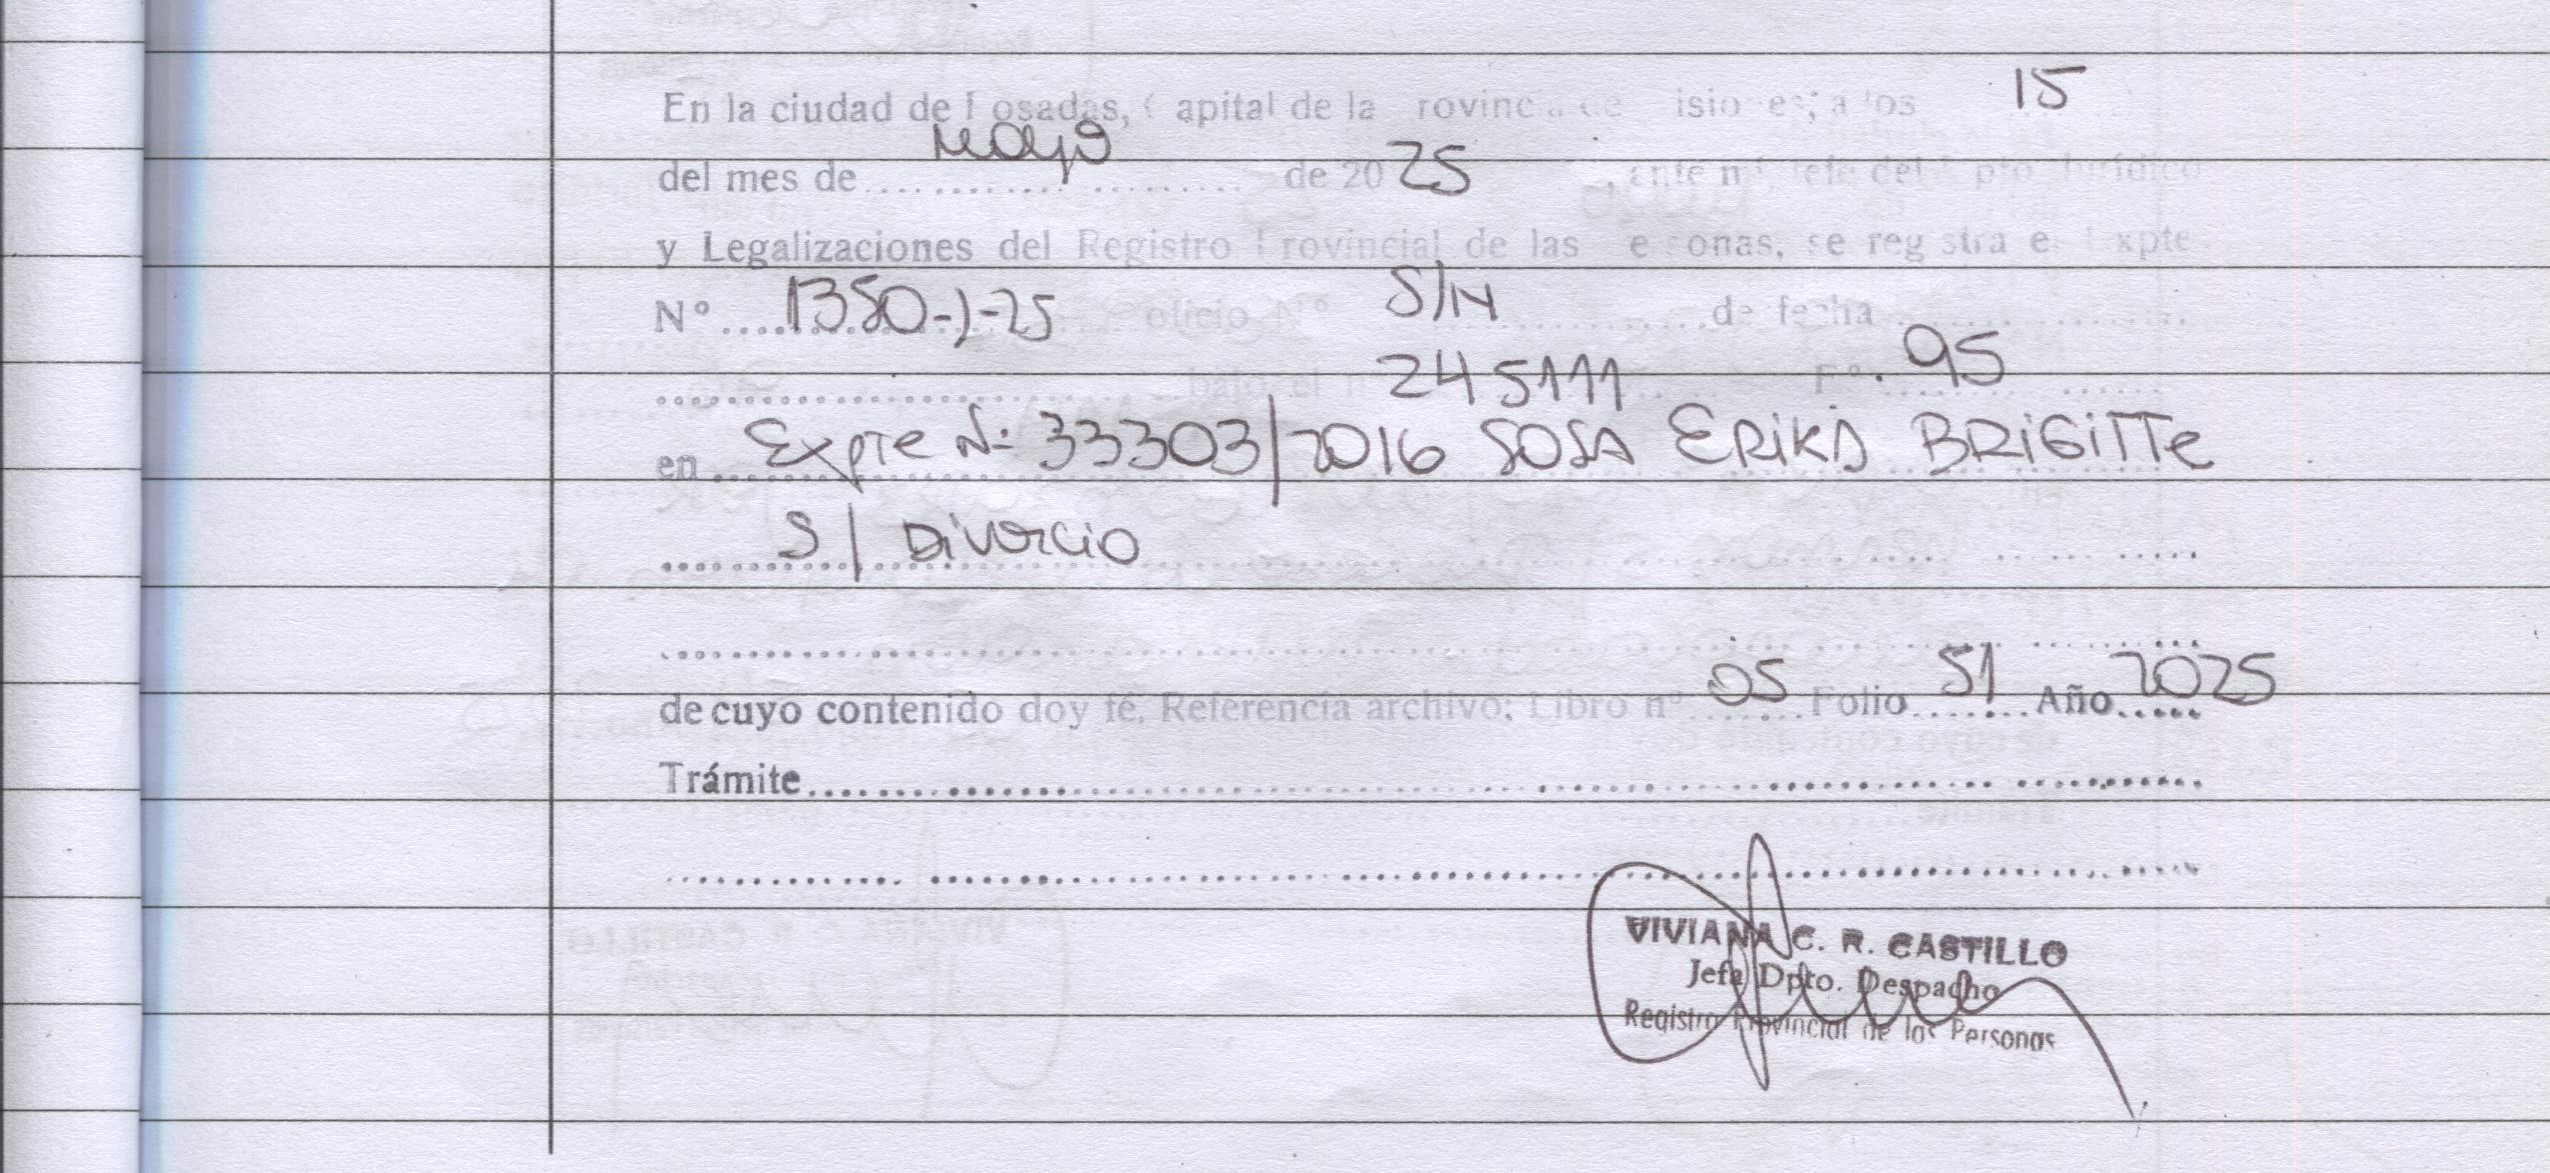 En la ciudad de Posadas, Capital de la Provincia de Misiones; a los 15
del mes de mayo de 2025, ante mi, Jefe del Dpto Jurídico
y Legalizaciones del Registro Provincial de las Personas, se registra el Expte
N° 1350-J-25 oficio N° S/N de fecha
bajo el n° 245111 F° 95
en Expte N° 33303/2016 SOSA ERIKA BRIGITTE
S/ Divorcio
de cuyo contenido doy fé. Referencia archivo: Libro n° 05 Folio 51 Año 2025
Trámite
VIVIANA C. R. CASTILLO
Jefa Dpto. Despacho
Registro Provincial de las Personas